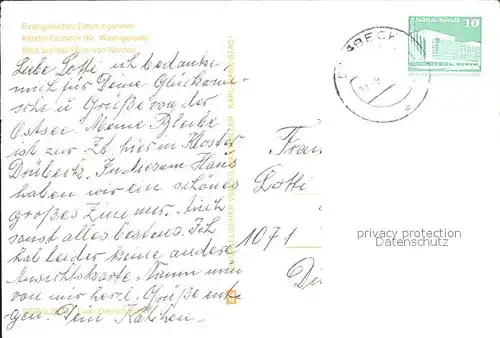 Evangelisches Erholungsheim
Kloster Drübeck (Kr. Wernigerode)
Blick auf das Haus von Norden
Liebe Lotti ich bedanke
mich für Deine Glückwün-
sche u Grüße von der
Ostsee. Meine Bleibe
ist zur Zt. hier in Kloster
Drübeck. In diesem Haus
haben wir ein schönes
großes Zimmer. Auch
sonst alles bestens. Ich
hab leider keine andere
Ansichtskarte. Nimm nun
von mir herzl. Grüße ent-
gegen. Dein Käthchen.
10
Frau
Lotti
1071
privacy protection
Datenschutz